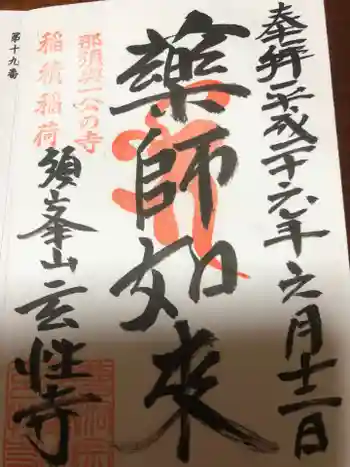 奉拝平成二十六年六月十二日
藥師如來
那須與一公の寺
稲積稲荷
須峯山玄性寺
第十九番